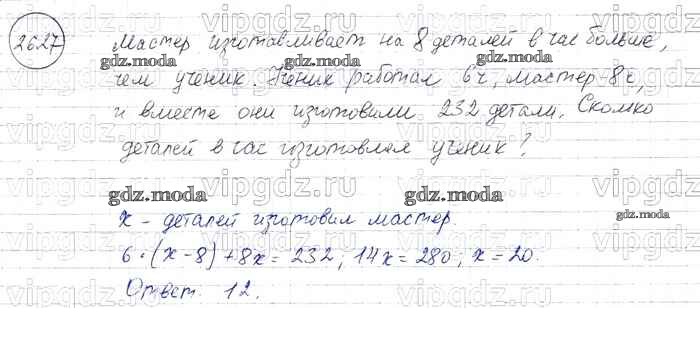 2627
Мастер изготавливает на 8 деталей в час больше,
чем ученик. Ученик работал 6ч, мастер-8ч,
и вместе они изготовили 232 детали. Сколко
деталей в час изготовлял ученик?
x - деталей изготовил мастер.
6·(x-8)+8x=232; 14x=280; x=20.
Ответ. 12.
vipgdz.ru
gdz.moda